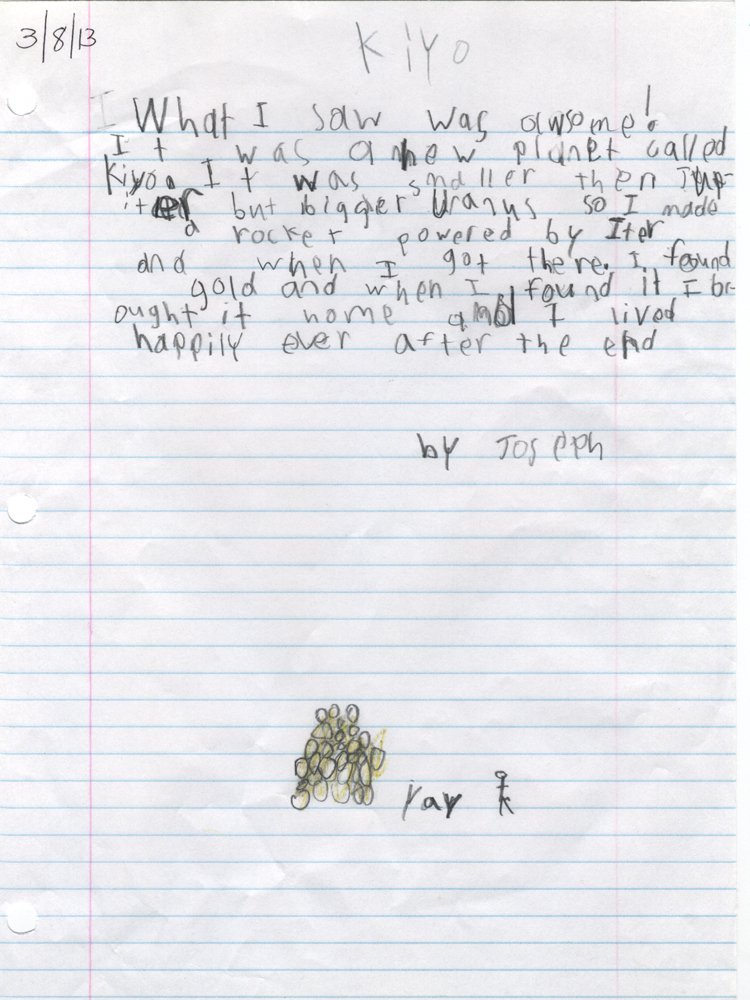 3/8/13
Kiyo
I What I saw was awsome!
It was a new planet called
Kiyo. It was smaller then Jup-
iter but bigger Uranus so I made
a rocket powered by Iter
and when I got there. I found
gold and when I found it I br-
ought it home and I lived
happily ever after the end
by Joseph
yay